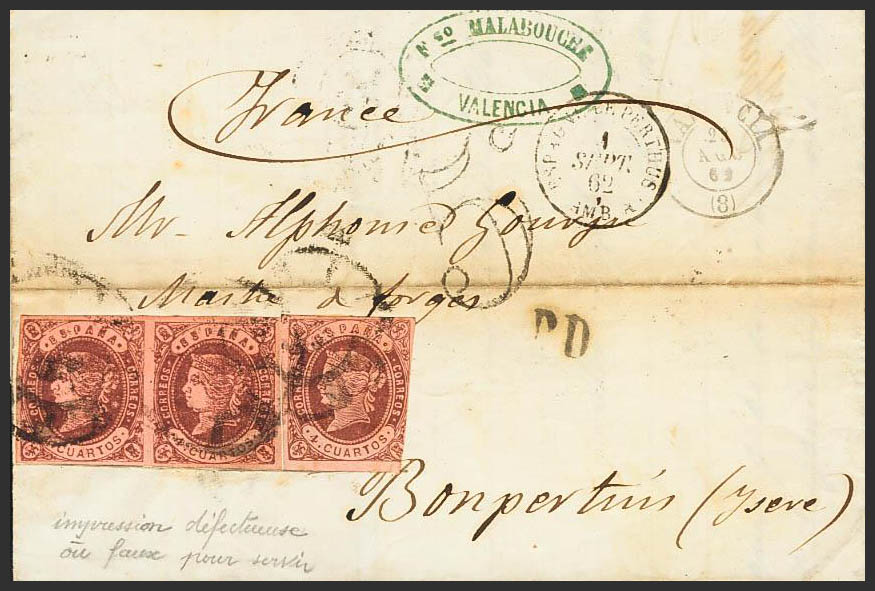 Fso MALABOUCHE
VALENCIA
France
ESPAGNE LE PERTHUS
1
SEPT.
62
AMB.
AGO
62
(3)
Mr. Alphonse Gourju
Maitre de forges
PD
ESPAÑA
CORREOS CORREOS
4 CUARTOS
ESPAÑA
CORREOS CORREOS
4 CUARTOS
ESPAÑA
CORREOS CORREOS
4 CUARTOS
Bonpertuis (Ysere)
impression défectueuse
ou faux pour servir